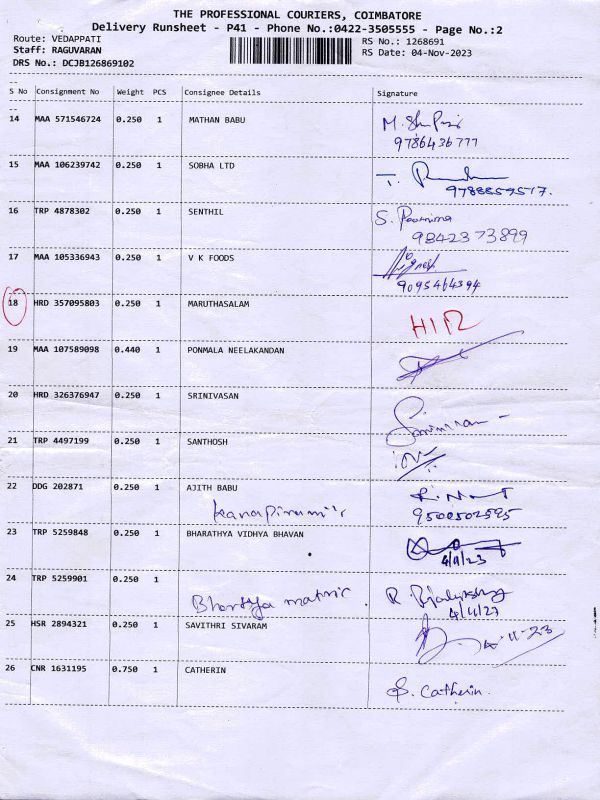 THE PROFESSIONAL COURIERS, COIMBATORE
Delivery Runsheet - P41 - Phone No.:0422-3505555 - Page No.:2
Route: VEDAPPATI
Staff: RAGUVARAN
DRS No.: DCJB126869102
RS No.: 1268691
RS Date: 04-Nov-2023
S No Consignment No Weight PCS Consignee Details Signature
14 MAA 571546724 0.250 1 MATHAN BABU
9786436777
15 MAA 106239742 0.250 1 SOBHA LTD
9788859517.
16 TRP 4878302 0.250 1 SENTHIL S. Poornima
9842373899
17 MAA 105336943 0.250 1 V K FOODS
9095464394
18 HRD 357095803 0.250 1 MARUTHASALAM
19 MAA 107589098 0.440 1 PONMALA NEELAKANDAN
20 HRD 326376947 0.250 1 SRINIVASAN
21 TRP 4497199 0.250 1 SANTHOSH
22 DDG 202871 0.250 1 AJITH BABU
9500502595
23 TRP 5259848 0.250 1 BHARATHYA VIDHYA BHAVAN
4/11/23
24 TRP 5259901 0.250 1
matric
25 HSR 2894321 0.250 1 SAVITHRI SIVARAM
26 CNR 1631195 0.750 1 CATHERIN
S. Catherin.